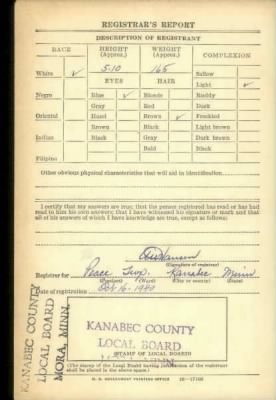 REGISTRAR'S REPORT
DESCRIPTION OF REGISTRANT
RACE HEIGHT (Approx.) WEIGHT (Approx.) COMPLEXION
White ✓ 5-10 165 Sallow
EYES HAIR Light ✓
Negro Blue ✓ Blonde Ruddy
Gray Red Dark
Oriental Hazel Brown ✓ Freckled
Brown Black Light brown
Indian Black Gray Dark brown
Bald Black
Filipino
Other obvious physical characteristics that will aid in identification
I certify that my answers are true; that the person registered has read or has had
read to him his own answers; that I have witnessed his signature or mark and that
all of his answers of which I have knowledge are true, except as follows:
Hansen
(Signature of registrar)
Registrar for Peace Twp. Kanabec Minn
(Ward) (City or county) (State)
Date of registration Oct 16 - 1940
KANABEC COUNTY
LOCAL BOARD
MORA, MINN.
KANABEC COUNTY
LOCAL BOARD
(STAMP OF LOCAL BOARD)
MORA, MINN.
(The stamp of the Local Board having jurisdiction of the registrant
shall be placed in the above space.)
U. S. GOVERNMENT PRINTING OFFICE 16-17105